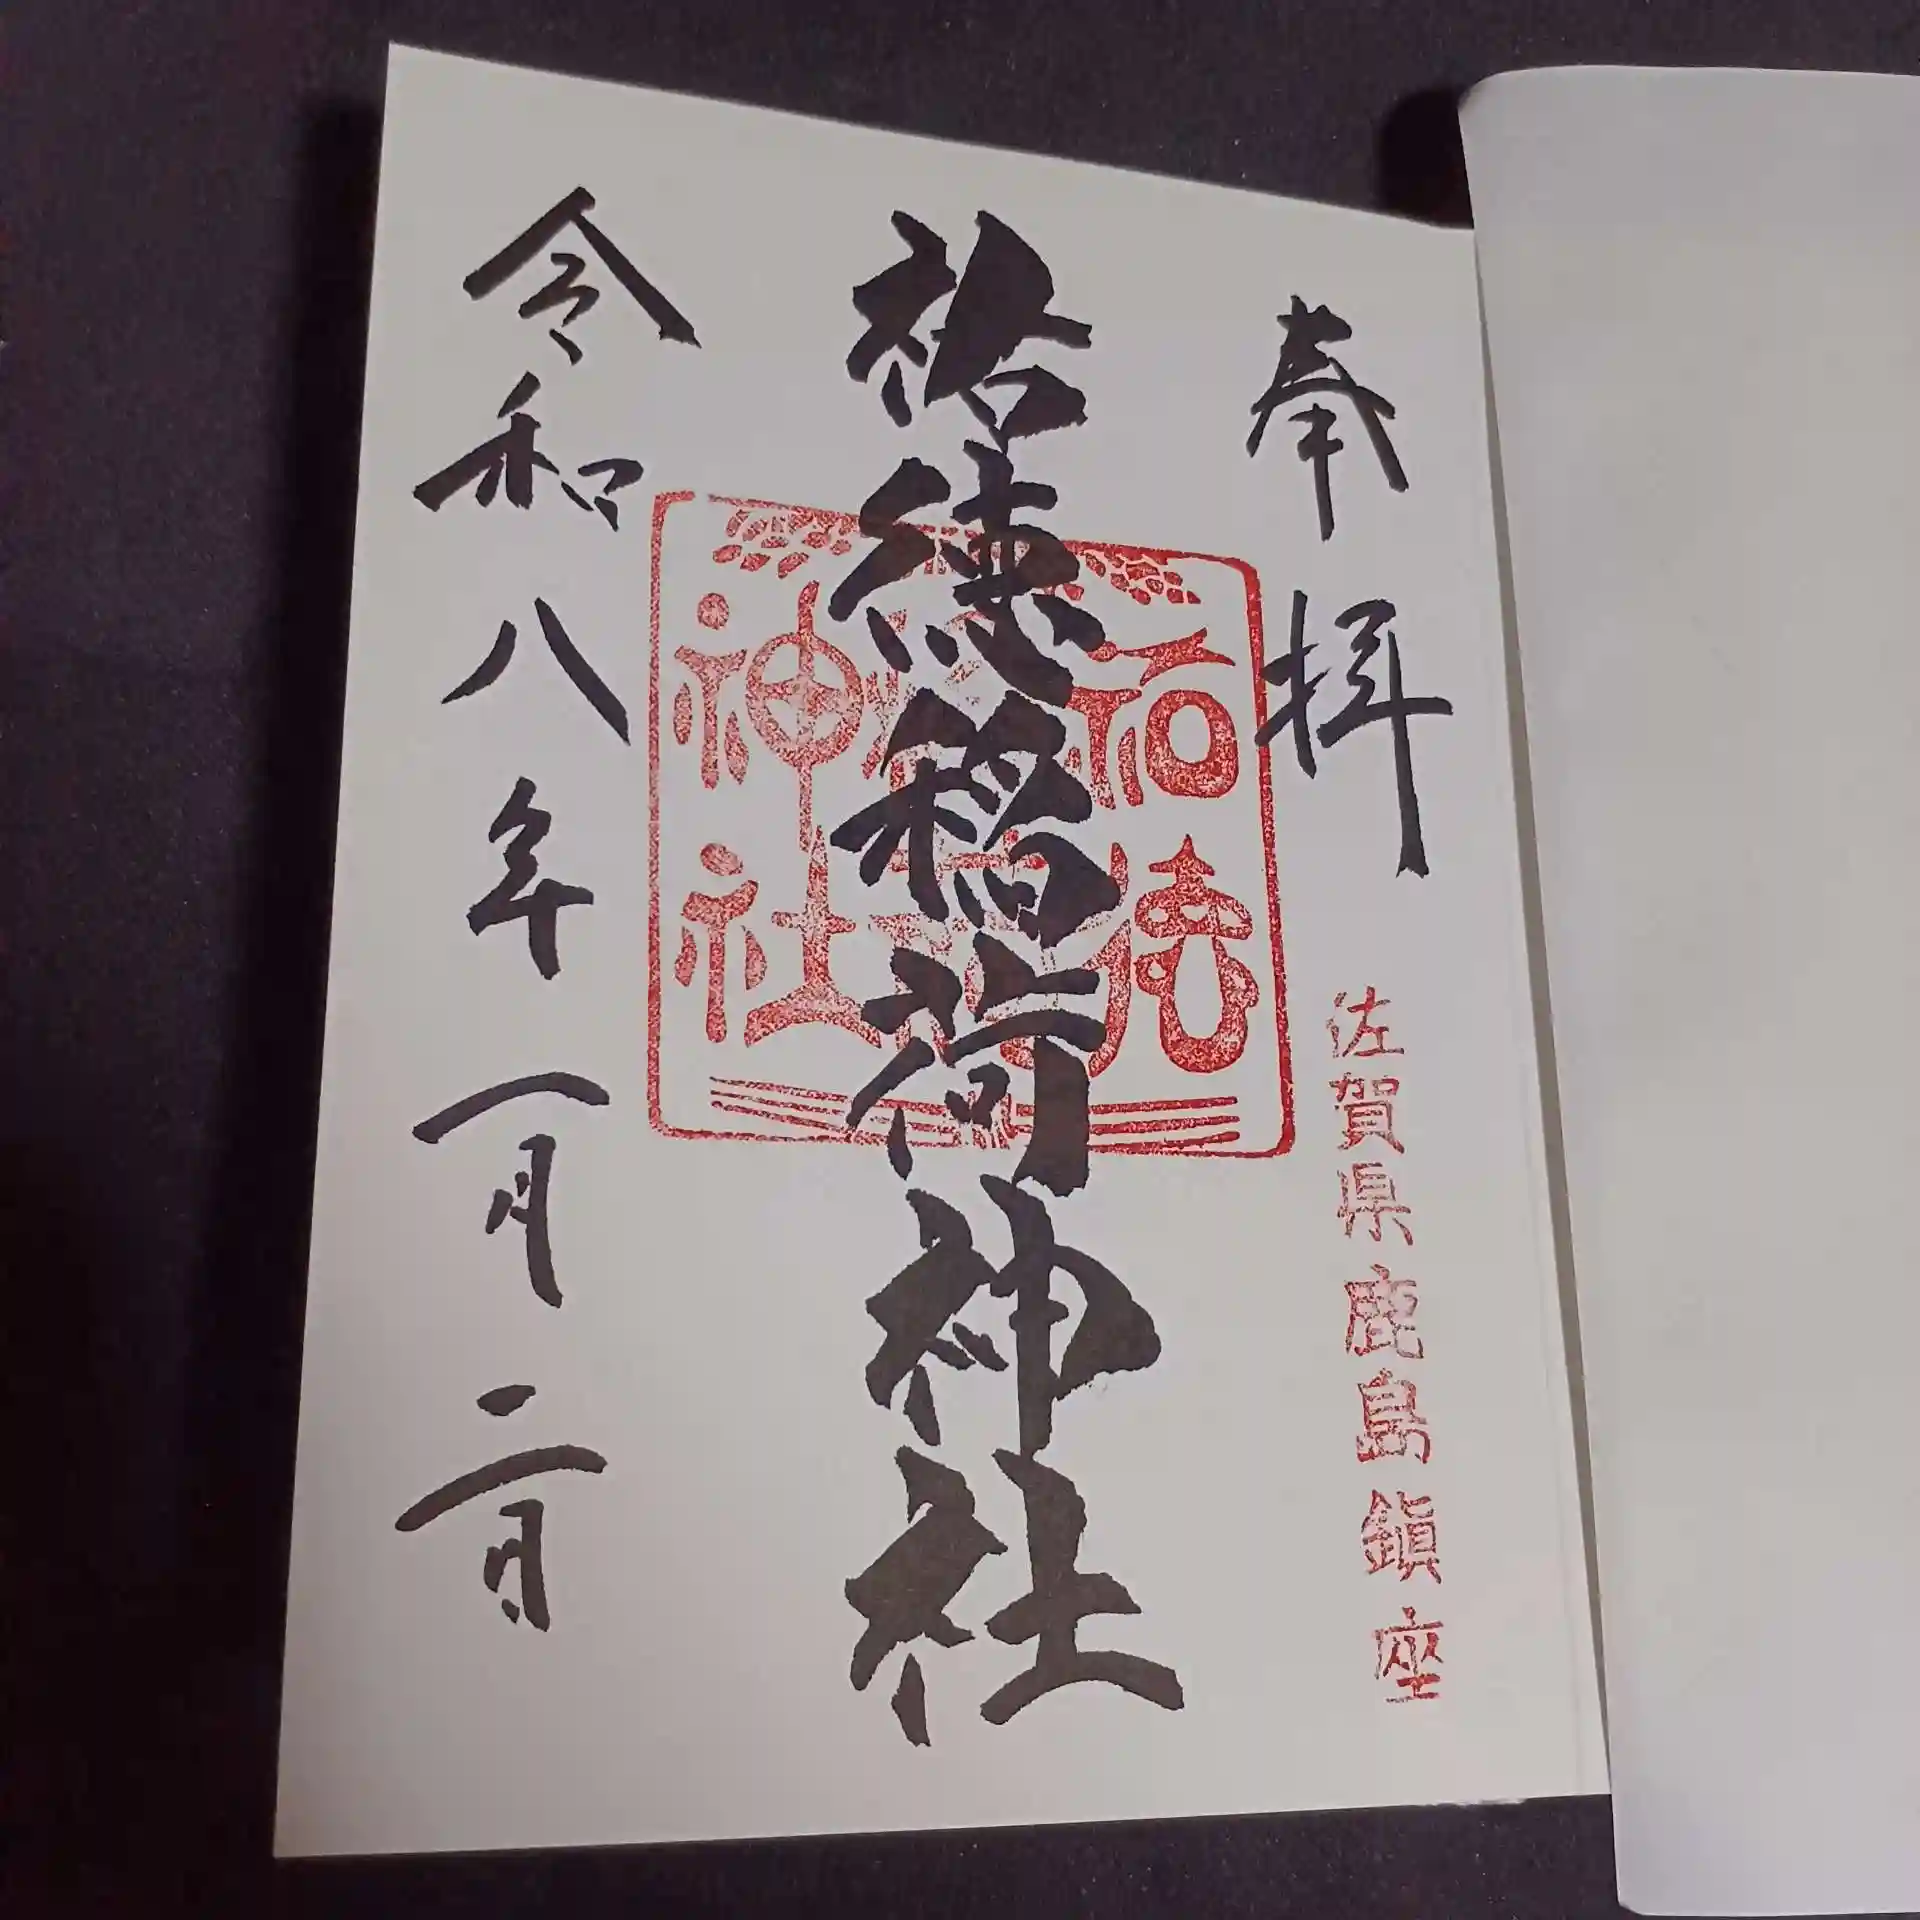 奉拝
佐賀県鹿島鎮座
祐徳稲荷神社
祐徳
稲荷
神社
令和八年一月二日